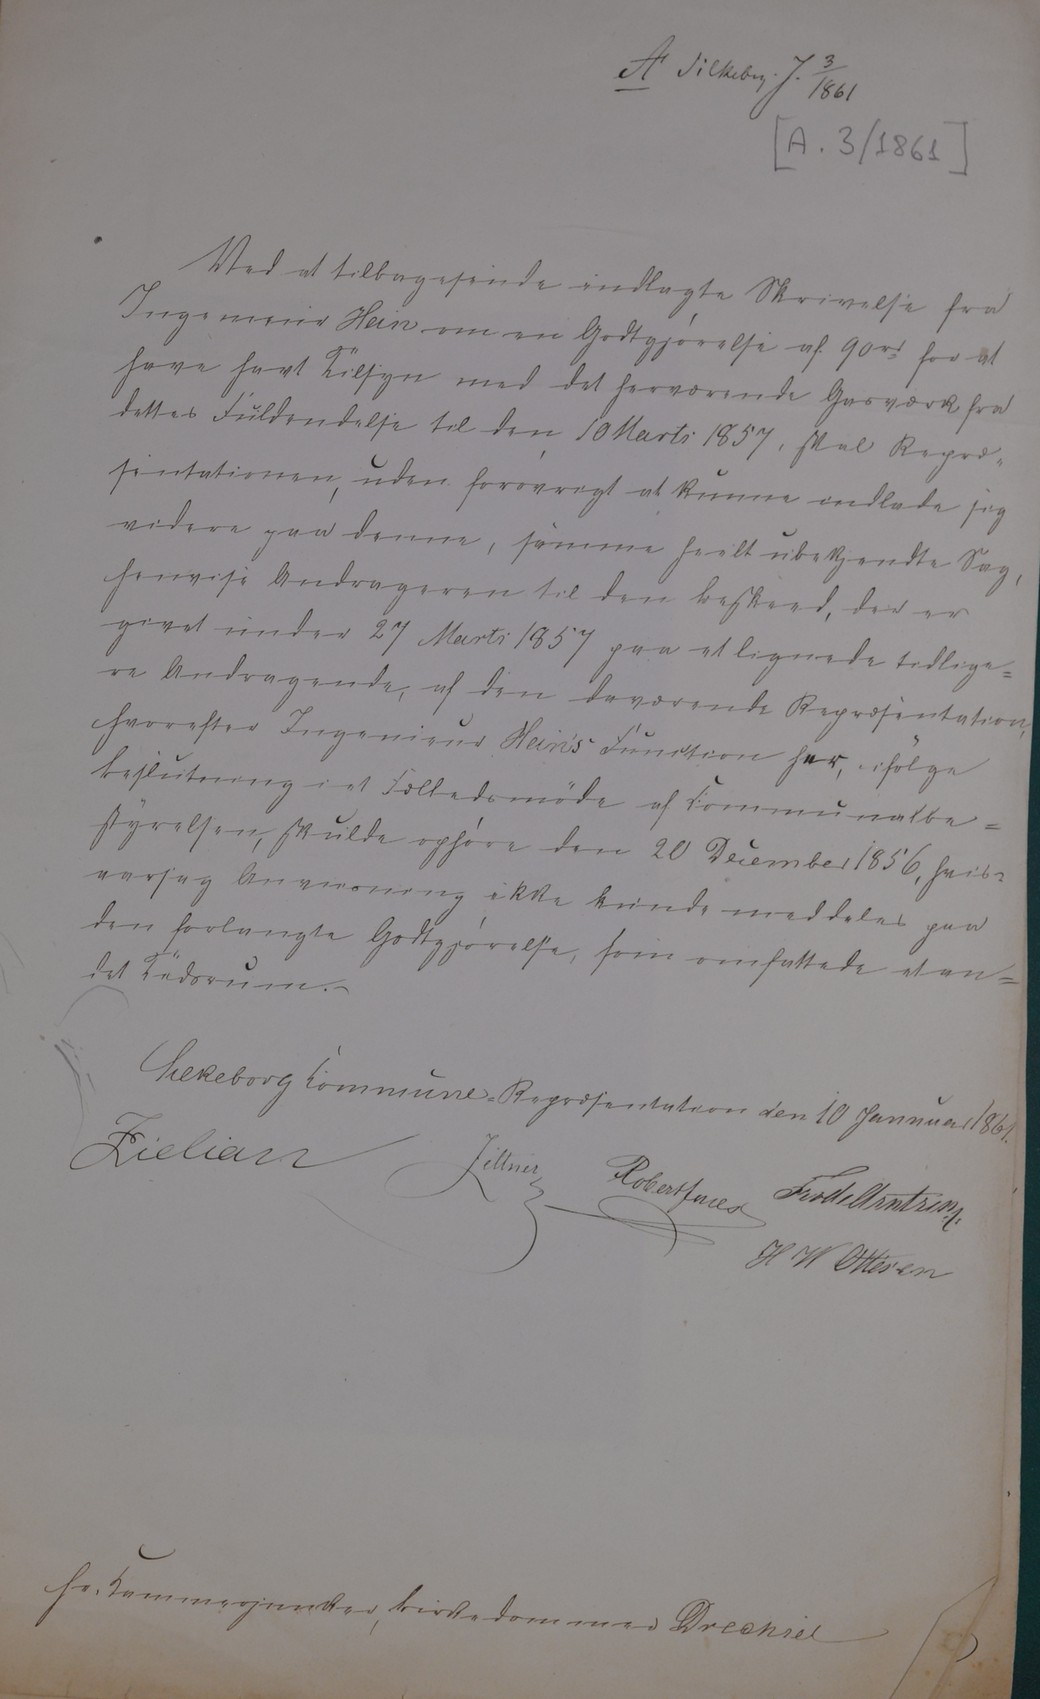 A Silkeborg J. 3/1861
[A. 3/1861]
Ved at tilbagesende indlagte Skrivelse fra
Ingenieur Hein om en Godtgjørelse af 90rd for at
have havt Tilsyn med det herværende Gasværk fra
dettes Fuldendelse til den 10 Marts 1857, skal Repræ-
sentationen, uden forøvrigt at kunne indlade sig
videre paa denne, samme heelt ubekjendte Sag,
henvise Andrageren til den Beskeed, der er
givet under 27 Marts 1857 paa et lignede tidlige=
re Andragende, af den daværende Repræsentation,
hvorefter Ingenieur Hein's Function her, ifølge
Beslutning i et Fælledsmöde af Communalbe=
styrelsen, skulde ophøre den 20 December 1856, hvis-
aarsag Anviisning ikke kunde meddeles paa
den forlangte Godtgjørelse, som omfattede et an=
det Tidsrum.-
Silkeborg Commune-Repræsentation den 10 Januar 1861.
Zielian Zeltner Robert
H W Ottesen
Hr. Kammerjunker, Birkedommer Drechsel